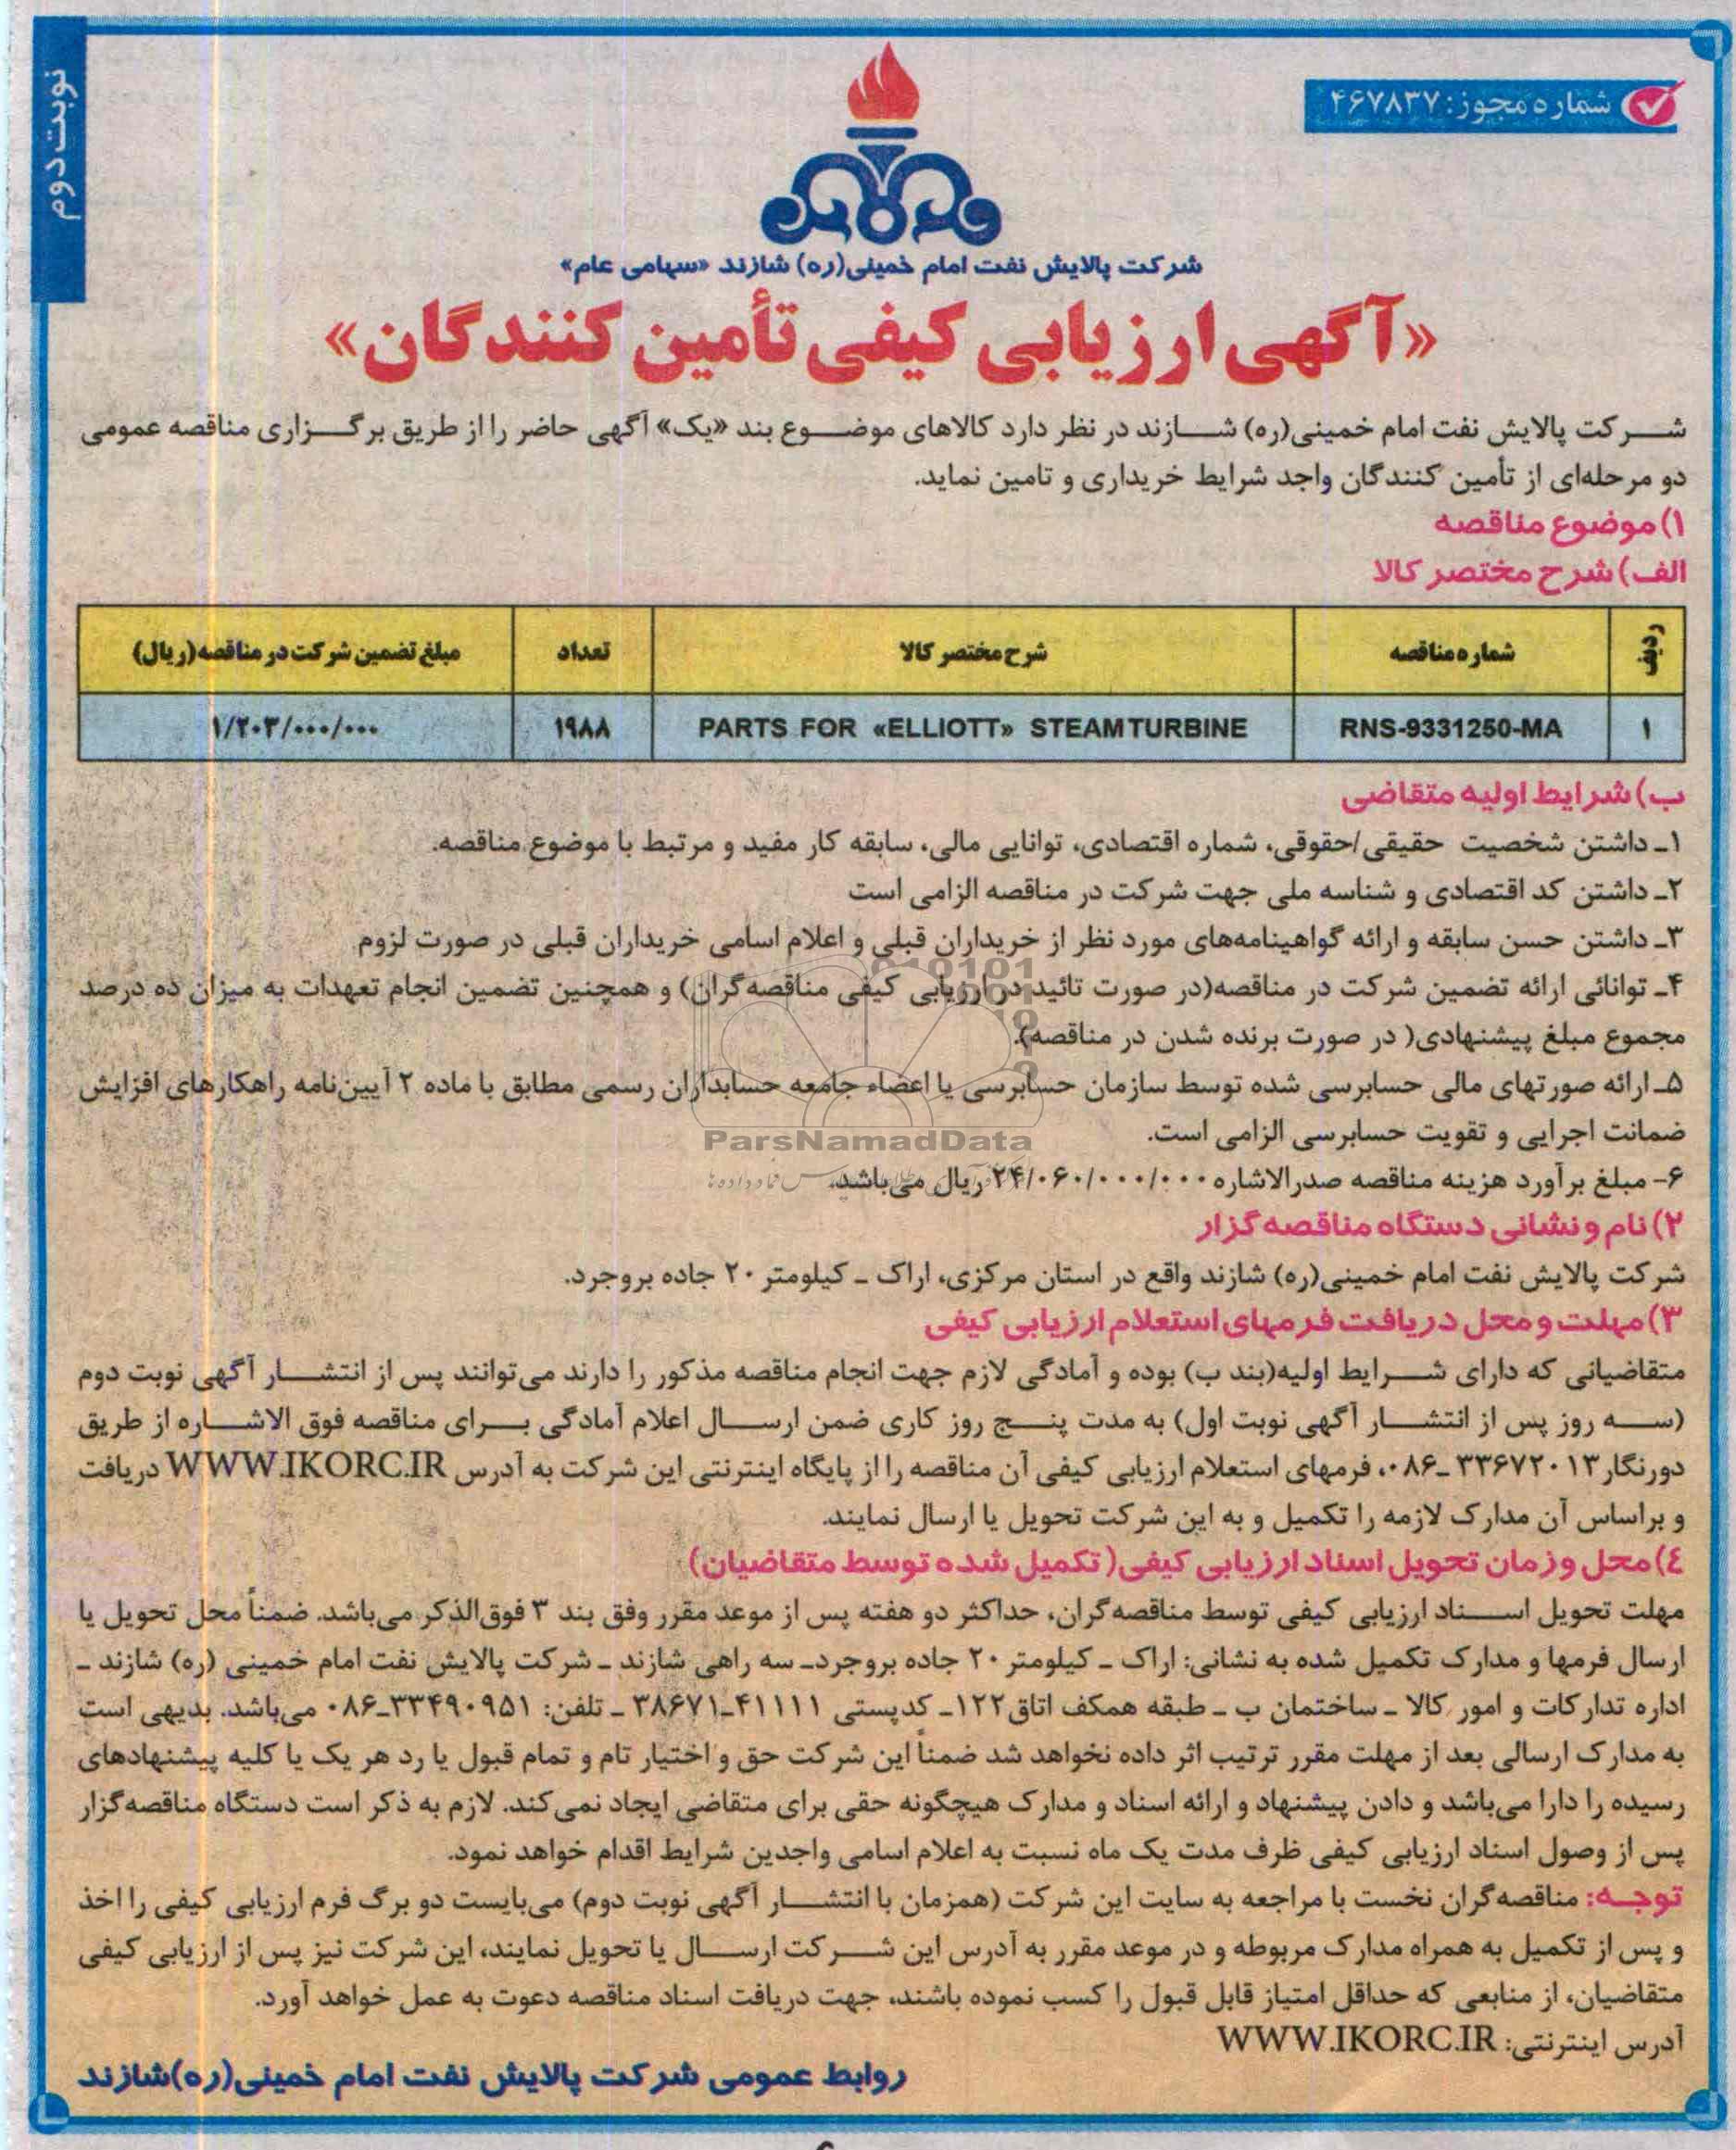 نوبت دوم
شماره مجوز: ۴۶۷۸۳۷
شرکت پالایش نفت امام خمینی(ره) شازند «سهامی عام»
«آگهی ارزیابی کیفی تأمین کنندگان»
شرکت پالایش نفت امام خمینی(ره) شازند در نظر دارد کالاهای موضوع بند «یک» آگهی حاضر را از طریق برگزاری مناقصه عمومی
دو مرحله‌ای از تأمین کنندگان واجد شرایط خریداری و تامین نماید.
۱) موضوع مناقصه
الف) شرح مختصر کالا
ردیف شماره مناقصه شرح مختصر کالا تعداد مبلغ تضمین شرکت در مناقصه(ریال)
۱ RNS-9331250-MA PARTS FOR «ELLIOTT» STEAM TURBINE ۱۹۸۸ ۱/۲۰۳/۰۰۰/۰۰۰
ب) شرایط اولیه متقاضی
۱ـ داشتن شخصیت حقیقی/حقوقی، شماره اقتصادی، توانایی مالی، سابقه کار مفید و مرتبط با موضوع مناقصه.
۲ـ داشتن کد اقتصادی و شناسه ملی جهت شرکت در مناقصه الزامی است
۳ـ داشتن حسن سابقه و ارائه گواهینامه‌های مورد نظر از خریداران قبلی و اعلام اسامی خریداران قبلی در صورت لزوم
۴ـ توانائی ارائه تضمین شرکت در مناقصه(در صورت تائید در ارزیابی کیفی مناقصه‌گران) و همچنین تضمین انجام تعهدات به میزان ده درصد
مجموع مبلغ پیشنهادی( در صورت برنده شدن در مناقصه).
۵ـ ارائه صورتهای مالی حسابرسی شده توسط سازمان حسابرسی یا اعضاء جامعه حسابداران رسمی مطابق با ماده ۲ آیین‌نامه راهکارهای افزایش
ضمانت اجرایی و تقویت حسابرسی الزامی است.
ParsNamadData
۶- مبلغ برآورد هزینه مناقصه صدرالاشاره ۲۴/۰۶۰/۰۰۰/۰۰۰ ریال می‌باشد.
۲) نام و نشانی دستگاه مناقصه گزار
شرکت پالایش نفت امام خمینی(ره) شازند واقع در استان مرکزی، اراک ـ کیلومتر ۲۰ جاده بروجرد.
۳) مهلت و محل دریافت فرمهای استعلام ارزیابی کیفی
متقاضیانی که دارای شرایط اولیه(بند ب) بوده و آمادگی لازم جهت انجام مناقصه مذکور را دارند می‌توانند پس از انتشار آگهی نوبت دوم
(سه روز پس از انتشار آگهی نوبت اول) به مدت پنج روز کاری ضمن ارسال اعلام آمادگی برای مناقصه فوق الاشاره از طریق
دورنگار ۳۳۶۷۲۰۱۳ ـ۰۸۶، فرمهای استعلام ارزیابی کیفی آن مناقصه را از پایگاه اینترنتی این شرکت به آدرس WWW.IKORC.IR دریافت
و براساس آن مدارک لازمه را تکمیل و به این شرکت تحویل یا ارسال نمایند.
۴) محل و زمان تحویل اسناد ارزیابی کیفی( تکمیل شده توسط متقاضیان)
مهلت تحویل اسناد ارزیابی کیفی توسط مناقصه‌گران، حداکثر دو هفته پس از موعد مقرر وفق بند ۳ فوق‌الذکر می‌باشد. ضمناً محل تحویل یا
ارسال فرمها و مدارک تکمیل شده به نشانی: اراک ـ کیلومتر ۲۰ جاده بروجردـ سه راهی شازند ـ شرکت پالایش نفت امام خمینی (ره) شازند ـ
اداره تدارکات و امور کالا ـ ساختمان ب ـ طبقه همکف اتاق۱۲۲ـ کدپستی ۴۱۱۱۱ـ۳۸۶۷۱ ـ تلفن: ۳۳۴۹۰۹۵۱ـ۰۸۶ می‌باشد. بدیهی است
به مدارک ارسالی بعد از مهلت مقرر ترتیب اثر داده نخواهد شد ضمناً این شرکت حق و اختیار تام و تمام قبول یا رد هر یک یا کلیه پیشنهادهای
رسیده را دارا می‌باشد و دادن پیشنهاد و ارائه اسناد و مدارک هیچگونه حقی برای متقاضی ایجاد نمی‌کند. لازم به ذکر است دستگاه مناقصه‌گزار
پس از وصول اسناد ارزیابی کیفی ظرف مدت یک ماه نسبت به اعلام اسامی واجدین شرایط اقدام خواهد نمود.
توجه: مناقصه‌گران نخست با مراجعه به سایت این شرکت (همزمان با انتشار آگهی نوبت دوم) می‌بایست دو برگ فرم ارزیابی کیفی را اخذ
و پس از تکمیل به همراه مدارک مربوطه و در موعد مقرر به آدرس این شرکت ارسال یا تحویل نمایند، این شرکت نیز پس از ارزیابی کیفی
متقاضیان، از منابعی که حداقل امتیاز قابل قبول را کسب نموده باشند، جهت دریافت اسناد مناقصه دعوت به عمل خواهد آورد.
آدرس اینترنتی: WWW.IKORC.IR
روابط عمومی شرکت پالایش نفت امام خمینی(ره)شازند